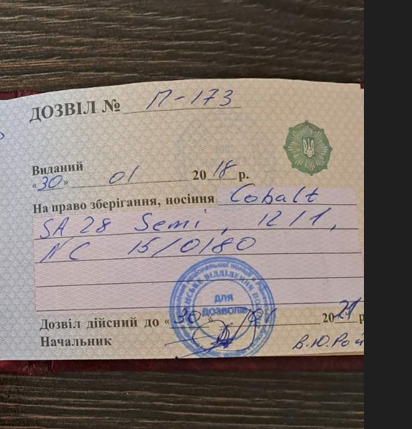 ДОЗВІЛ № П-173
Виданий
«30» 01 2018 р.
На право зберігання, носіння Cobalt
SA 28 Semi, 12/1,
NC 15/0180
ДЛЯ
ДОЗВОЛІВ
Дозвіл дійсний до «30» 01 2021 р
Начальник В.Ю.